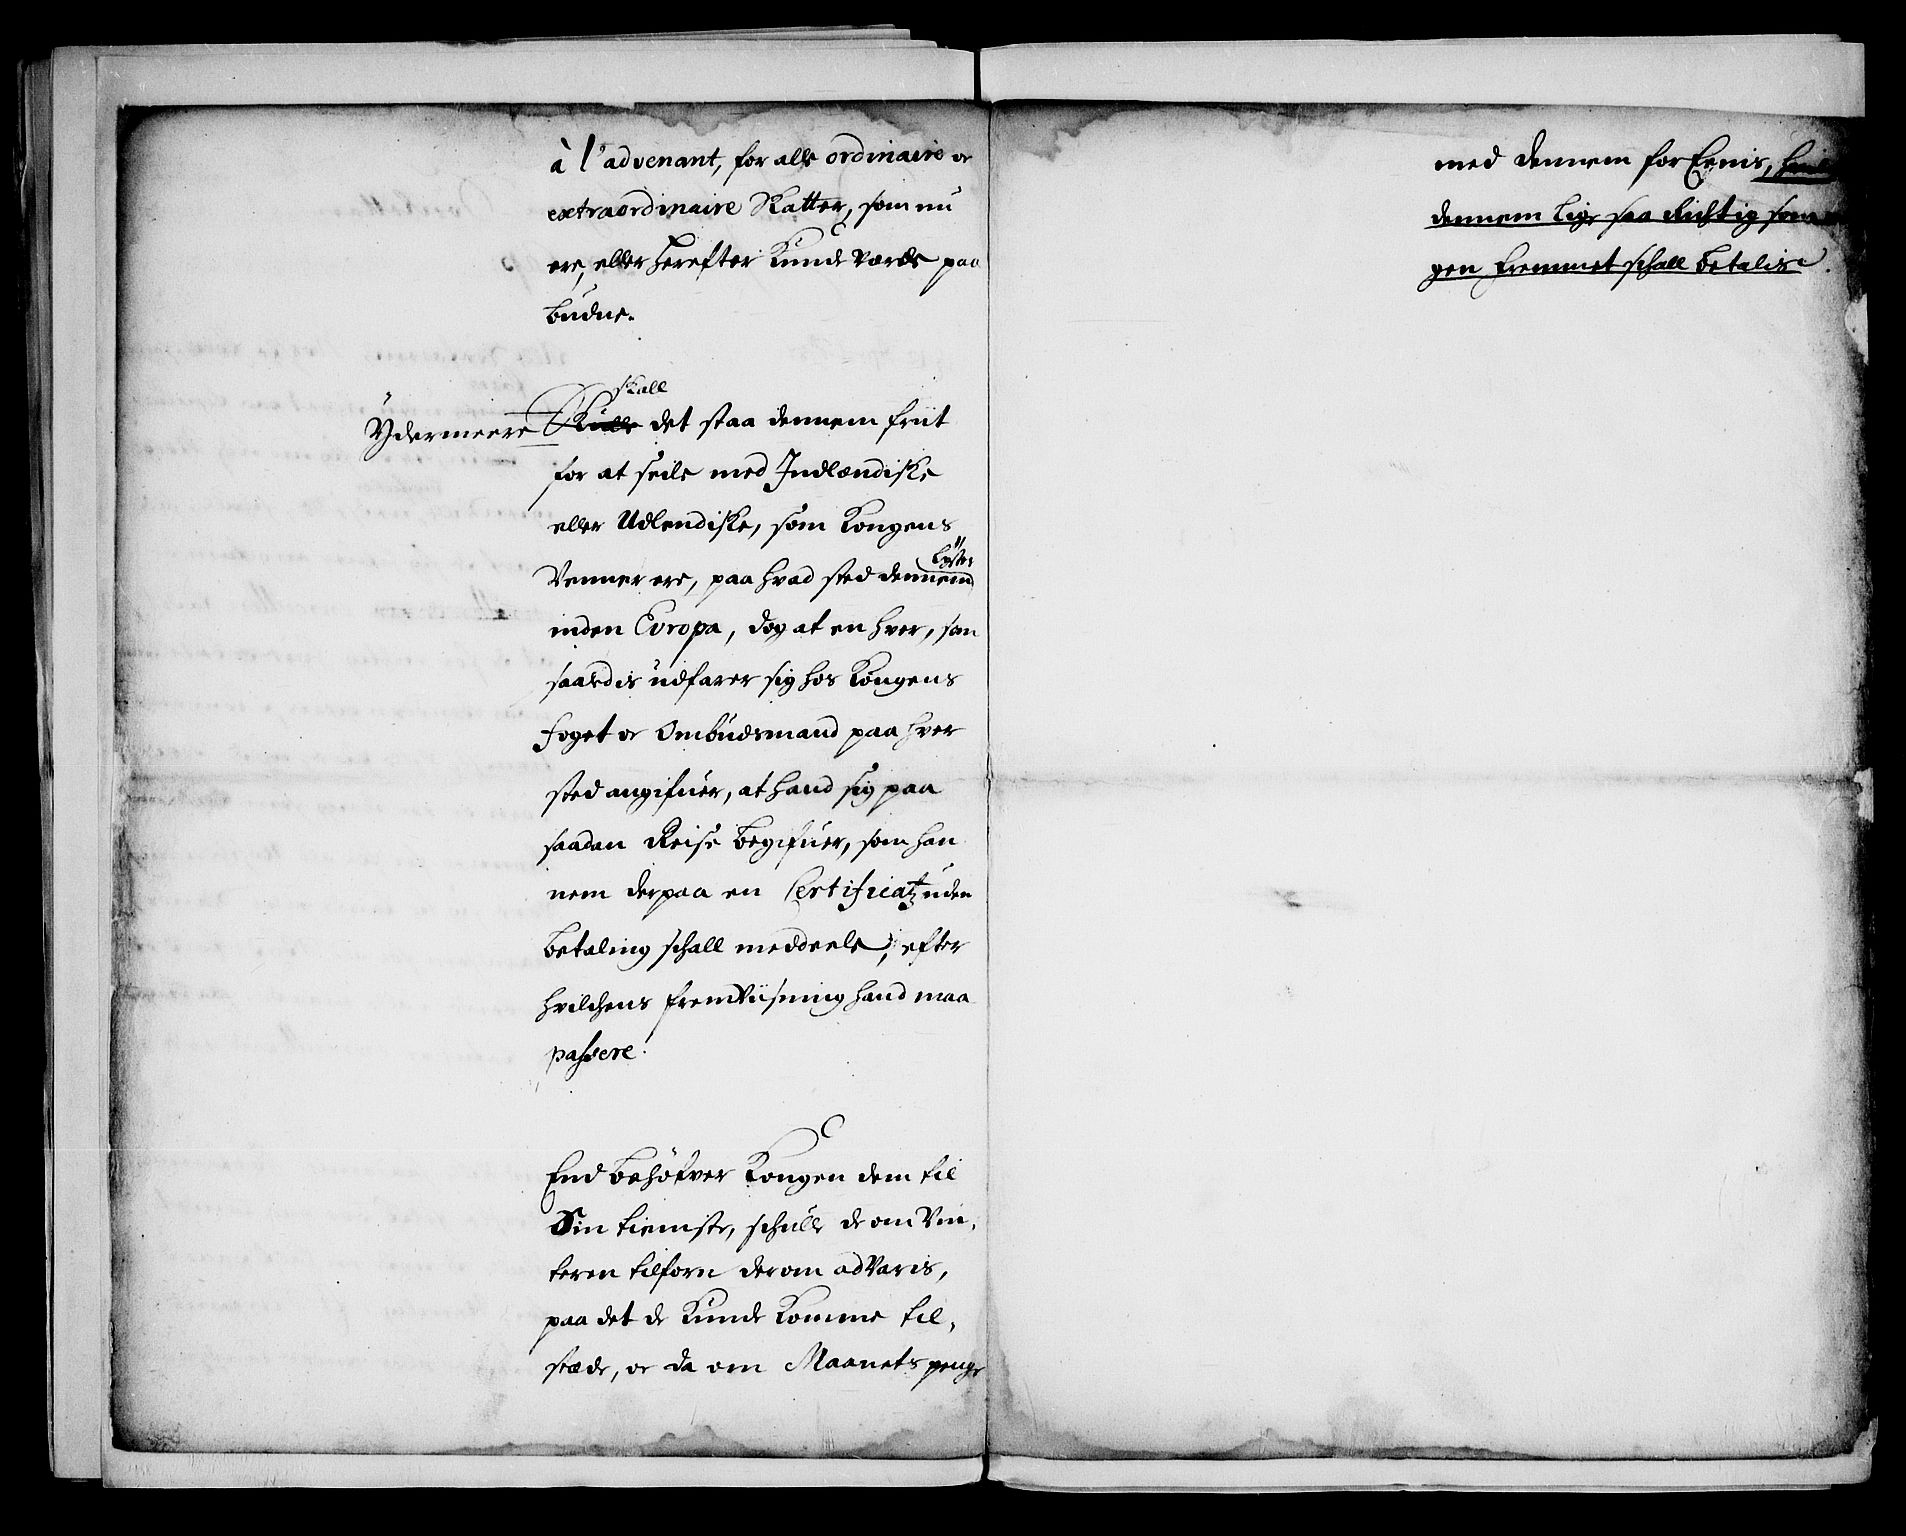 à l'advenant, for alle ordinaire oc
extraordinaire Skatter, som nu
ere, eller herefter Kunde Vorde paa
budne.
skall
Ydermeere Skulle det staa dennem friit
for at seile med Indlændiske
eller Udlendiske, som Kongens
lyster
Venner ere, paa hvad sted dennem
inden Evropa, dog at en hver, som
saaledis udfarer sig hos Kongens
foget oc Ombudsmand paa hver
sted angifuer, at hand sig paa
saadan Reise begifuer, som han
nem derpaa en Certificatz uden
betaling schall meddeele, efter
hvilchens fremviisning hand maa
passere.
End behøfver Kongen dem til
Sin tieniste, schulle de om Vin,
teren tilforn derom advaris,
paa det de Kunde Komme til,
stæde, oc da om Maanets penge
med dennem for Eenis,
dennem lige saa richtig som
gen fremmet schall betalis.